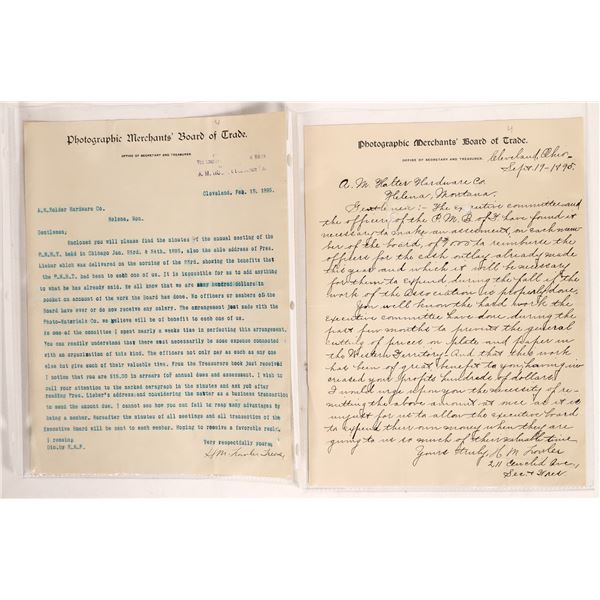 Photographic Merchants' Board of Trade.
OFFICE OF SECRETARY AND TREASURER.
Cleveland, Feb. 15, 1895.
A.M.Holder Hardware Co.
Helena, Mon.
Gentlemen,
Enclosed you will please find the minutes of the annual meeting of the
P.M.B.T. held in Chicago Jan. 23rd, & 24th, 1895, also the able address of Pres.
Lieber which was delivered on the morning of the 23rd, showing the benefits that
the P.M.B.T. had been to each one of us. It is impossible for us to add anything
to what he has already said. We all know that we are many hundred dollars in
pocket on account of the work the Board has done. No officers or members of the
Board have ever or do now receive any salary. The arrangement just made with the
Photo-Materials Co. we believe will be of benefit to each one of us.
is one of the committee I spent nearly a weeks time in perfecting this arrangement.
You can readily understand that there must necessarily be some expense connected
with an organization of this kind. The officers not only pay as much as any one
else but give much of their valuable time. From the Treasurers book just received
I notice that you are $15.00 in arrears for annual dues and assessment. I wish to
call your attention to the marked paragraph in the minutes and ask you after
reading Pres. Lieber's address, and considering the matter as a business transaction
to send the amount due. I cannot see how you can fail to reap many advantages by
being a member. Hereafter the minutes of all meetings and all transactions of the
Executive Board will be sent to each member. Hoping to receive a favorable reply,
I remain
Very respectfully yours,
Photographic Merchants' Board of Trade.
OFFICE OF SECRETARY AND TREASURER.
Cleveland, Ohio
Sept. 19 - 1895.
A. M. Holter Hardware Co
Helena, Montana,
Gentlemen :- The executive committee and
the officers of the P.M.B. of T have found it
necessary to make an assessment, on each mem
ber of the board, of \$5.00 to reimburse the
officers for the cash outlay already made
this year and which it will be necessary
for them to expend during the fall if the
work of the Association is properly done.
You well know the hard work the
executive committee have done during the
past few months to prevent the general
cutting of prices on plates and paper in
the Western Territory. And that this work
has been of great benefit to you having in-
creased your profits hundreds of dollars.
I would urge upon you the necessity of re-
mitting the above amount at once as it is
unjust for us to allow the executive board
to expend their own money when they are
giving to us so much of their valuable time
Yours truly, M
211 Euclid Ave,
Sec & Treas.